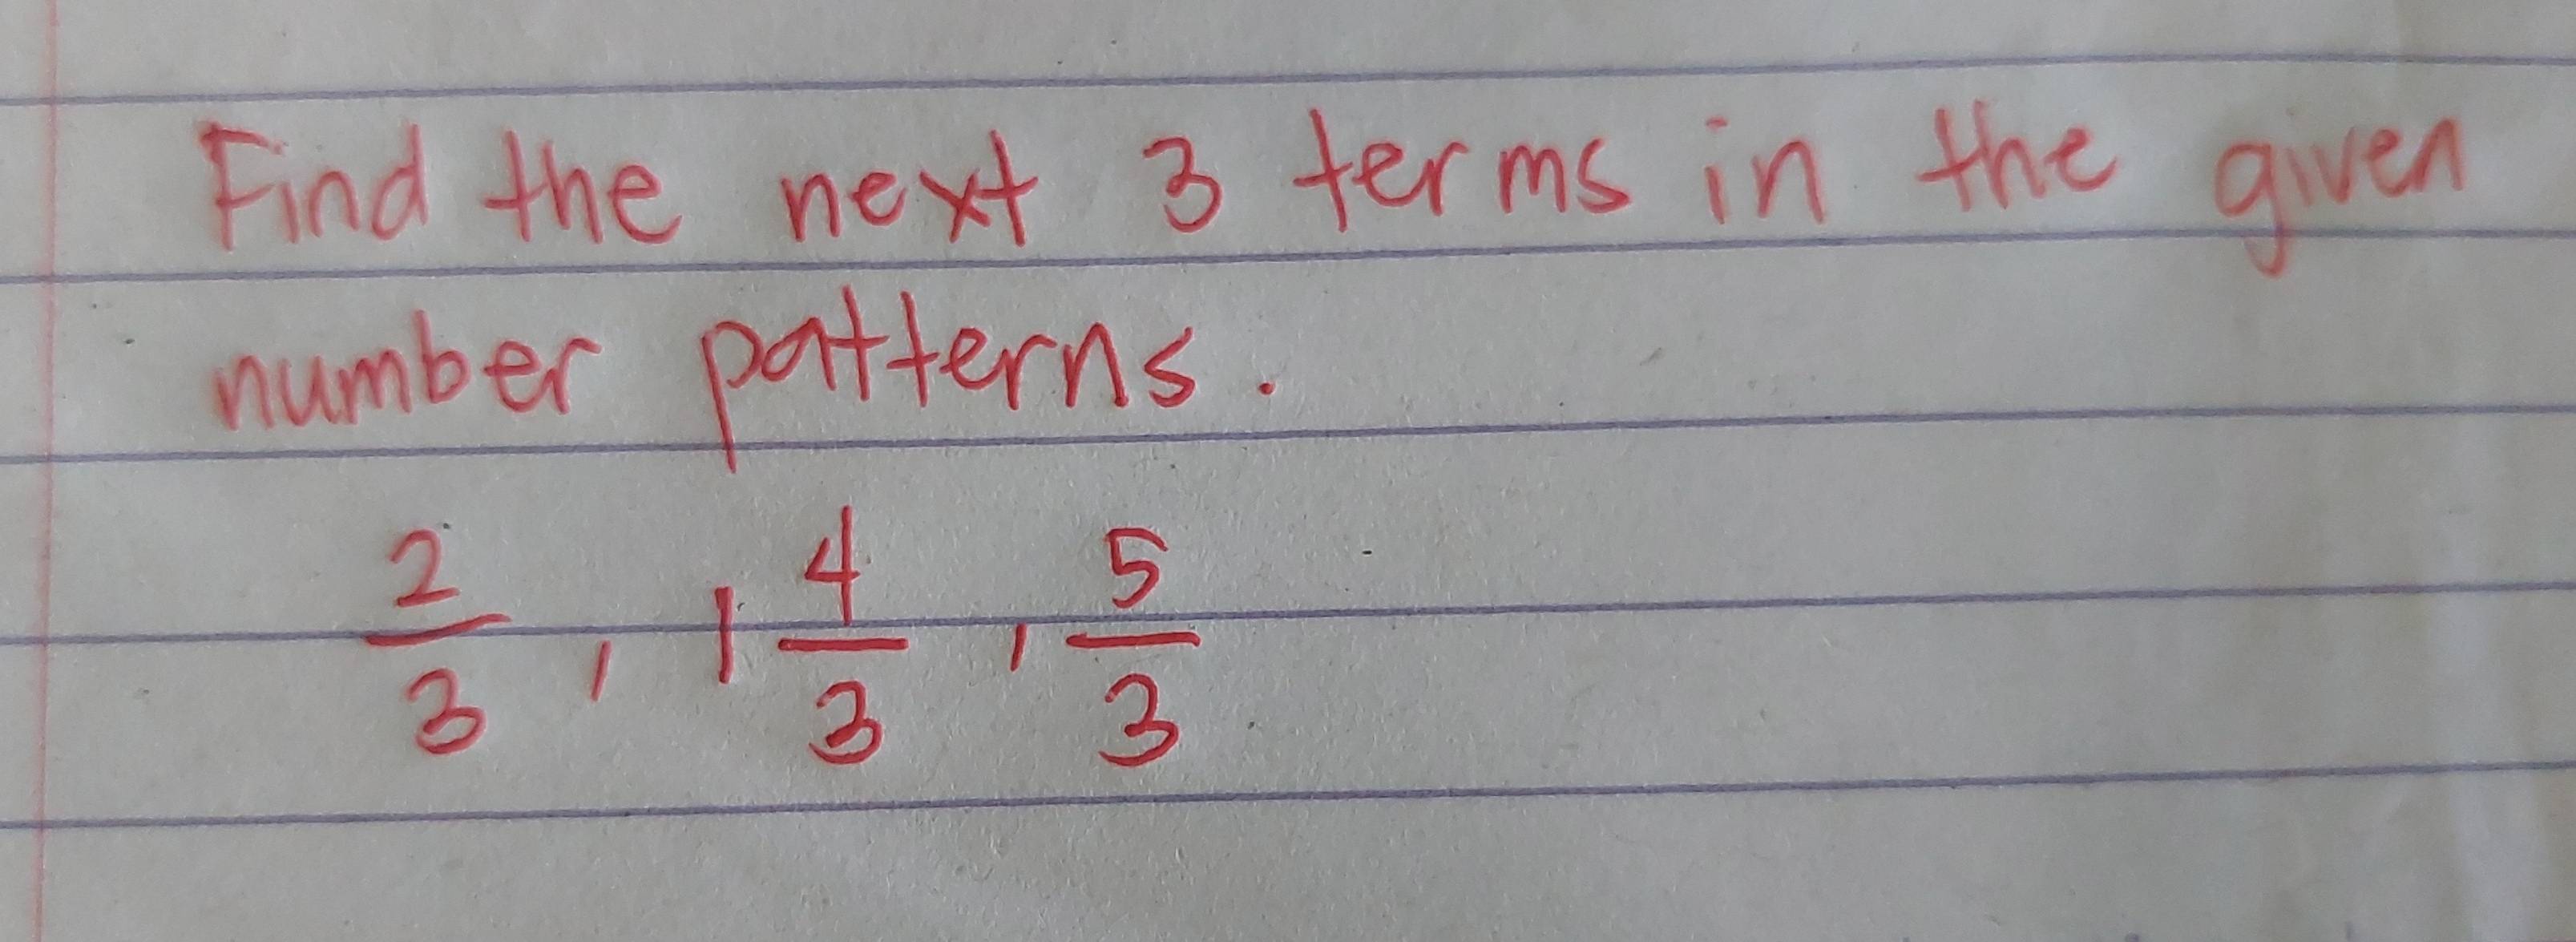 Find the next 3 terms in the given
number patterns.
2/3, 1 4/3, 5/3